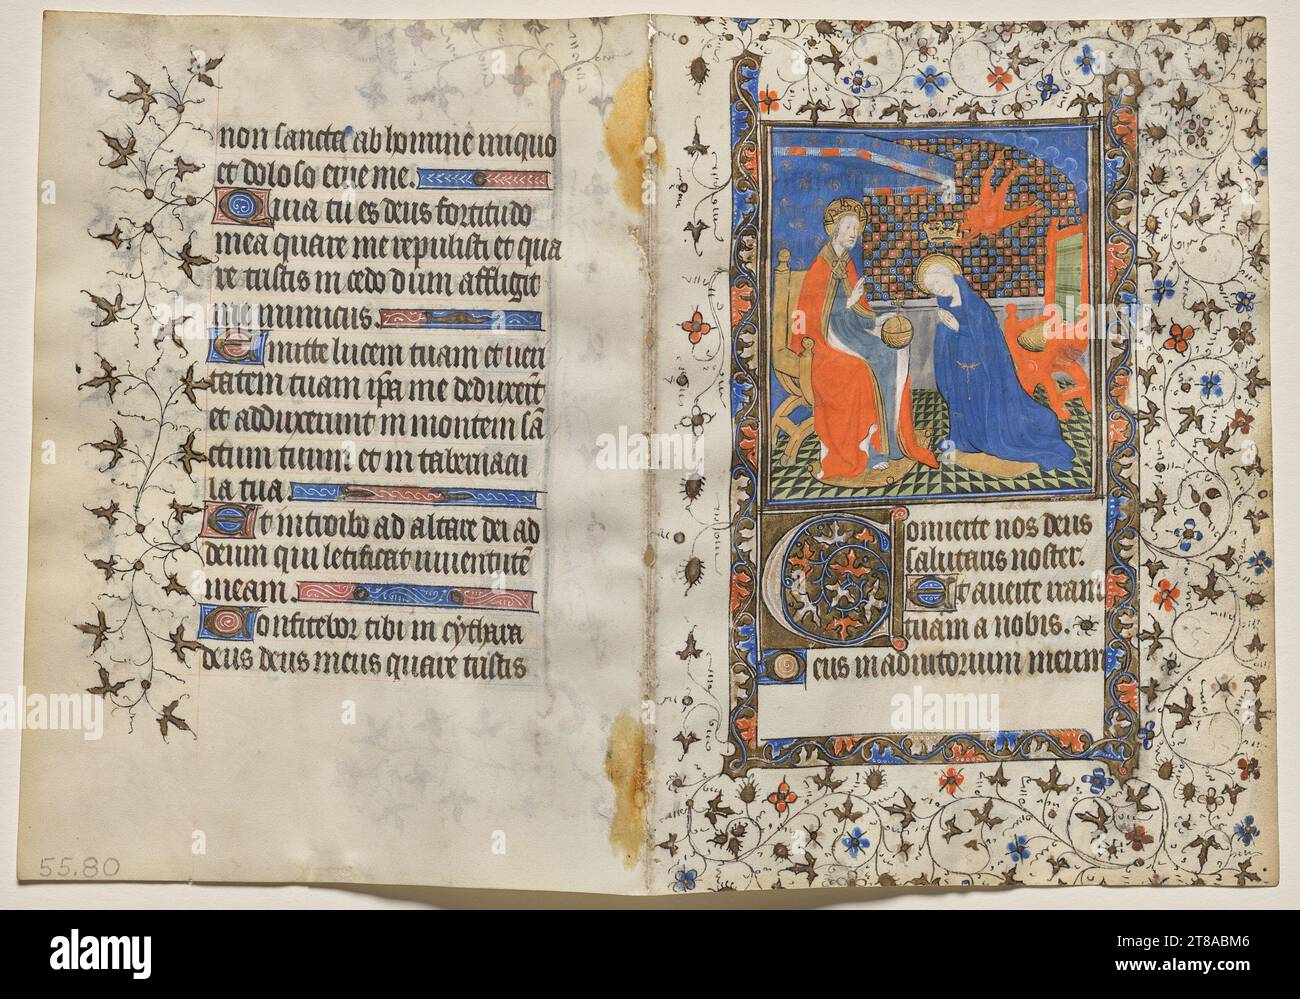 non sancta ab homine iniquo
et doloso eripe me.
Quia tu es deus fortitudo
mea quare me repulisti et qua
re tristis incedo dum affligit
me inimicus.
Emitte lucem tuam et veri
tatem tuam ipsa me deduxerut
et adduxerunt in montem san
ctum tuum et in tabernacu
la tua
Et introibo ad altare dei ad
deum qui letificat iuventute
meam.
Confitebor tibi in cythara
deus deus meus quare tristis
55.80
Converte nos deus
salutaris noster.
Et averte iram
tuam a nobis.
Deus in adiutorium meum
alamy
Image ID: 2T8ABM6
www.alamy.com